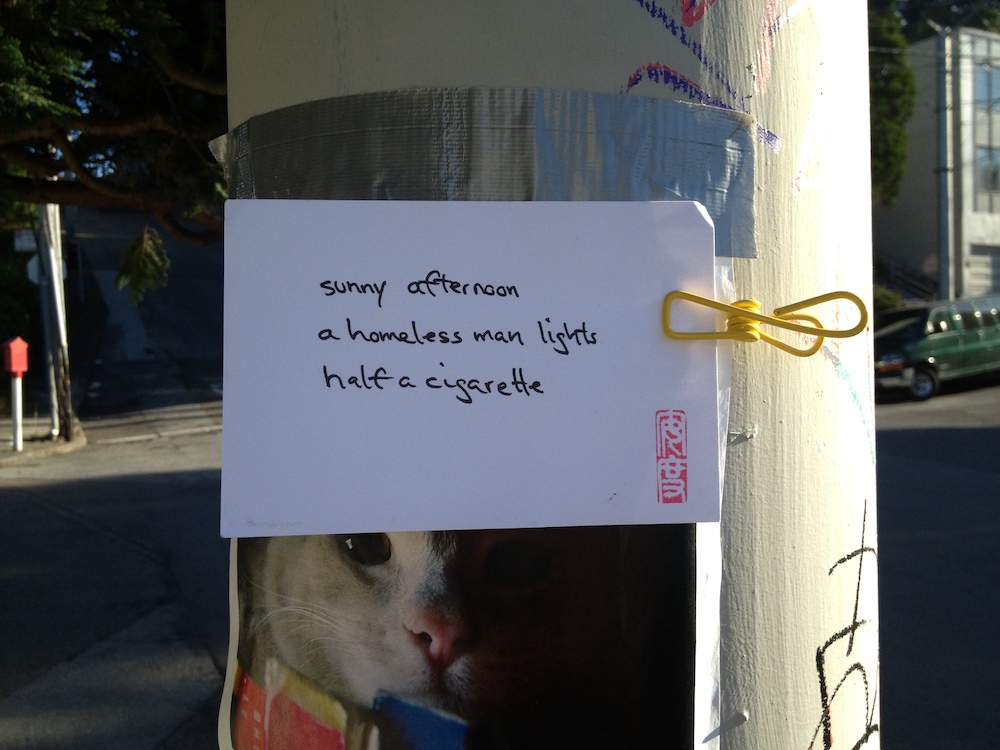 sunny afternoon
a homeless man lights
half a cigarette